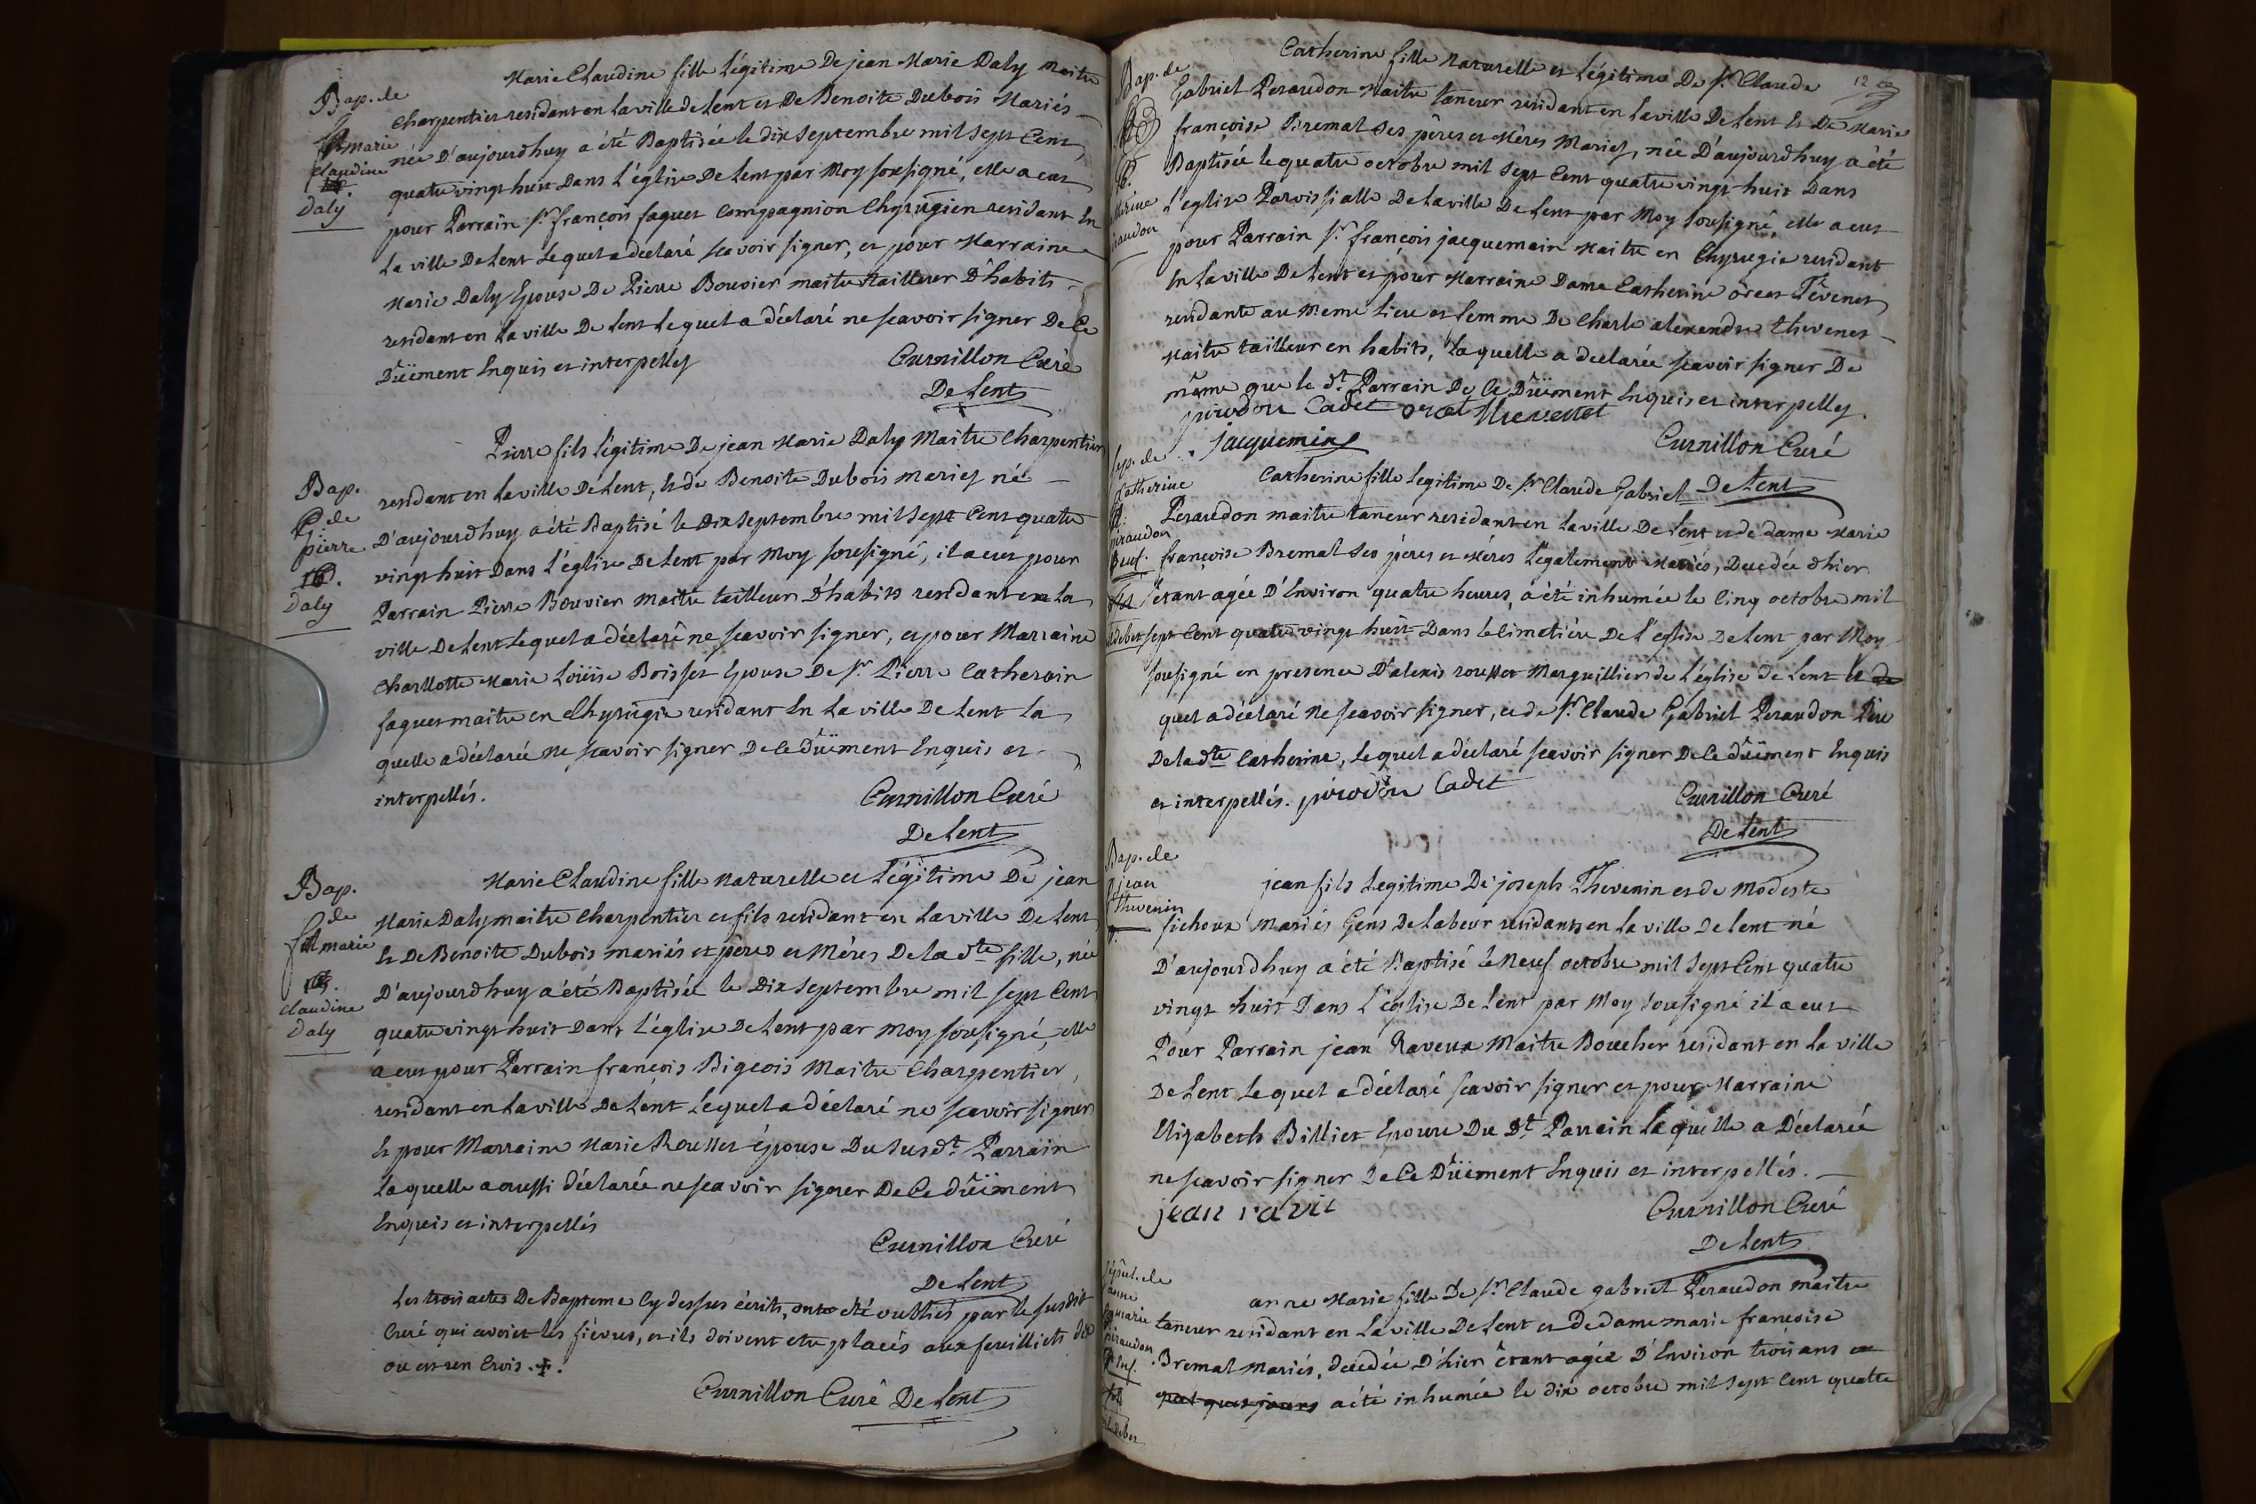 Bap. de
marie
claudine
Daly
Marie Claudine fille Légitime De jean Marie Daly Maitre
charpentier residant en la ville de Lent et De Benoite Dubois Mariés
née D'aujourdhuy a été Baptisée le dix septembre mil sept Cent
quatre vingt huit Dans L'église De Lent par Moy sousigné, elle a eut
pour Parrain Sr. françois faguet Compagnion Chyrugien residant En
La ville De Lent Lequel a declaré scavoir signer, et pour Marraine
Marie Daly Epouse De Pierre Bouvier maitre tailleur D'habits
residant en La ville De Lent Lequel a déclaré ne scavoir signer De Ce
Düement Enquis et interpellez
Curnillon Curé
De Lent
Bap.
de
pierre
Daly
Pierre fils légitime De jean Marie Daly Maitre Charpentier
residant en La ville De Lent, Et de Benoite Dubois Mariez né
D'aujourdhuy a été Baptisé le Dix septembre mil sept Cent quatre
vingt huit Dans L'église De Lent par Moy soussigné, il a eut pour
Parrain Pierre Bouvier Maitre tailleur D'habits residant en La
ville De Lent Lequel a déclaré ne scavoir signer, et pour Marraine
Charllotte Marie Loüise Boisset Epouse De Sr. Pierre Catherain
faguet maitre en Chyrügie residant En La ville De Lent La
quelle a déclarée ne scavoir signer De Ce düement Enquis et
interpellés.
Curnillon Curé
De Lent
Bap.
de
marie
claudine
Daly
Marie Claudine fille Naturelle et Légitime De jean
Marie Daly maitre Charpentier et fils residant en La ville De Lent
Et De Benoite Dubois mariés et pères et Méres De la dte fille, née
D'aujourdhuy a été Baptisée le Dix septembre mil sept Cent
quatre vingt huit Dans L'église De Lent par Moy sousigné, elle
a eut pour Parrain françois Bigeois Maitre Charpentier,
residant en La ville De Lent Lequel a déclaré ne scavoir signer
Et pour Marraine Marie Rousset épouse Du susdt. Parrain
Laquelle a aussi déclarée ne scavoir signer De Ce düement
Enquis et interpellés
Curnillon Curé
De Lent
Les trois actes De Bapteme Cy dessus écrits, onts été oubliés par le susdit
Curé qui avoiet les fiévres, et ils doivent etre placés aux feuillets dix
ou est un Crois. +.
Curnillon Curé De Lent
12
Bap. de
Catherine fille Naturelle et Légitime De Sr. Claude
Gabriel Peraudon Maitre tanneur residant en La ville De Lent Et De Marie
françoise Bremal Ses pères et Mères Mariez, née D'aujourdhuy a été
Baptisée le quatre octobre mil sept Cent quatre vingt huit Dans
L'eglise Parroissialle De La ville De Lent par Moy sousigné, elle a eut
pour Parrain Sr. françois jacquemain Maitre en Chyrugie residant
En La ville De Lent et pour Marraine Dame Catherine oreat Tévenet
residante au Meme Lieu et femme De Charle alexendre thevenet
Maitre tailleur en habits, Laquelle a declarée scavoir signer De
même que le dt. Parrain De Ce Düement Enquis et interpelley.
pirodon Cadet oreat thevenet
jacquemin
Curnillon Curé
De Lent
Sep. de
Catherine
piraudon
Catherine fille Legitime De Sr. Claude Gabriel
Peraudon maitre taneur residant en La ville De Lent et de dame Marie
françoise Bremal ses péres et Méres Légalement Mariés, Decedée d'hier
étant agée D'Environ quatre heures, a été inhumée le Cinq octobre mil
sept Cent quatre vingt huit Dans le Cimetiére De L'eglise De Lent par Moy
sousigné en presence D'alexis rousset Marguillier de L'église de Lent le
quel a déclaré Ne scavoir signer, et de Sr. Claude Gabriel Peraudon Pere
De la dte Catherine, Lequel a déclaré scavoir signer De Ce düement Enquis
et interpellés. pirodon Cadet
Curnillon Curé
De Lent
Bap. de
jean
thevenin
jean fils Legitime De joseph Thevenin et de Modeste
fichoux Mariés Gens De Labeur residants en La ville De Lent né
D'aujourdhuy a été Baptisé le Neuf octobre mil sept Cent quatre
vingt huit Dans L'église De Lent par Moy sousigné il a eut
Pour Parrain jean Raveux Maitre Boucher residant en La ville
De Lent Lequel a déclaré scavoir signer et pour Marraine
Elizabeth Billiet Epouse Du Dt. Parrain Laquelle a Déclarée
ne scavoir signer De Ce Düement Enquis et interpellés.
jean ravit
Curnillon Curé
De Lent
Sépult. de
anne
marie
piraudon
anne Marie fille De Sr. Claude gabriel Peraudon maitre
taneur residant en La ville De Lent et De dame marie francoise
Bremal Mariés, decedée D'hier étant agée D'Environ trois ans et
quelques jours a été inhumée le dix octobre mil sept Cent quatre